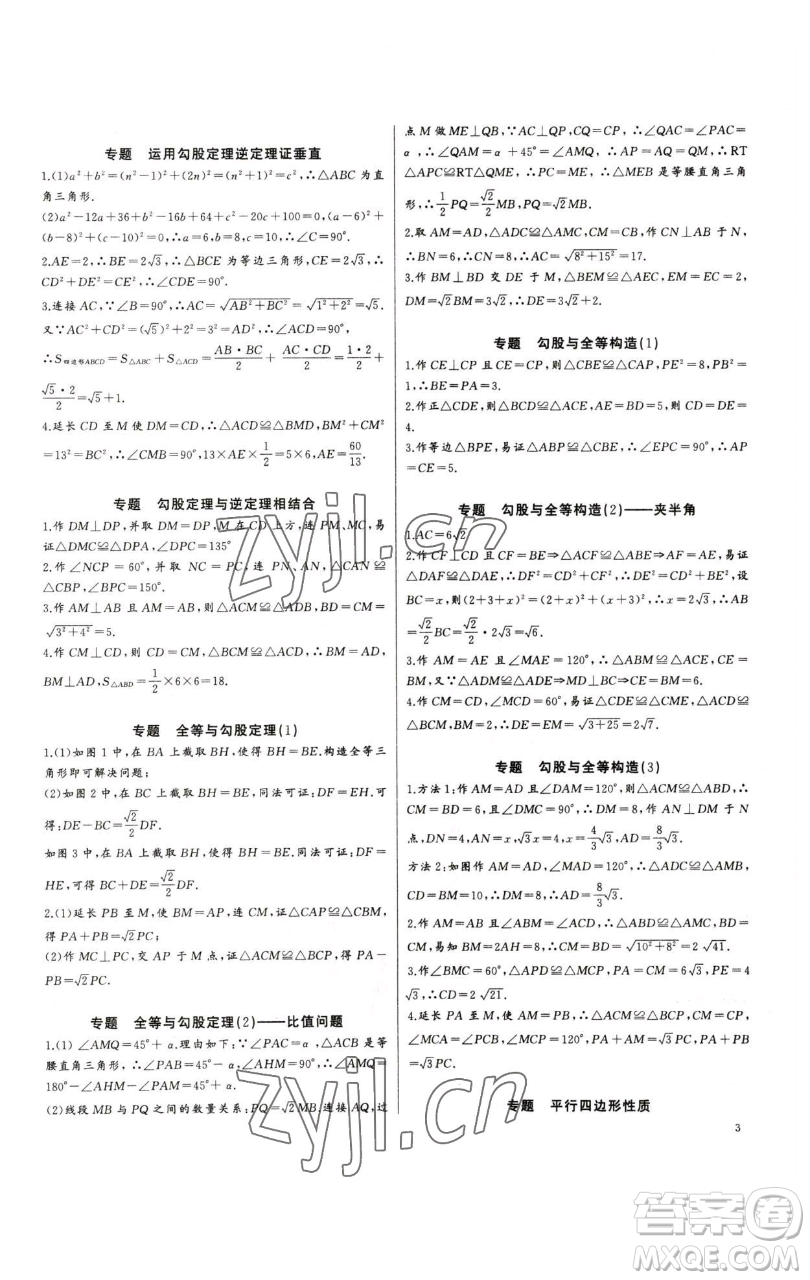 专题　运用勾股定理逆定理证垂直
1.(1)a²+b²=(n²-1)²+(2n)²=(n²+1)²=c²,∴△ABC 为直
角三角形.
(2)a²-12a+36+b²-16b+64+c²-20c+100=0,(a-6)²+
(b-8)²+(c-10)²=0,∴a=6,b=8,c=10,∴∠C=90°.
2.AE=2,∴BE=2√3,∴△BCE 为等边三角形,CE=2√3,∴
CD²+DE²=CE²,∴∠CDE=90°.
3.连接 AC,∵∠B=90°,∴AC=√(AB²+BC²)=√(1²+2²)=√5.
又∵AC²+CD²=(√5)²+2²=3²=AD²,∴∠ACD=90°,
∴S四边形ABCD=S△ABC+S△ACD=AB·BC/2+AC·CD/2=1·2/2+
√5·2/2=√5+1.
4.延长 CD 至 M 使 DM=CD,∴△ACD≌△BMD,BM²+CM²
=13²=BC²,∴∠CMB=90°,13×AE×1/2=5×6,∴AE=60/13.
专题　勾股定理与逆定理相结合
1.作 DM⊥DP,并取 DM=DP,M 在 CD 上方,连 PM、MC,易
证△DMC≌△DPA,∠DPC=135°
2.作∠NCP=60°,并取 NC=PC,连 PN、AN,△CAN≌
△CBP,∠BPC=150°.
3.作 AM⊥AB 且 AM=AB,则△CAM≌△DAB,BD=CM=
√(3²+4²)=5.
4.作 CM⊥CD 且 CM=CD,则△BCM≌△ACD,∴BM=AD,
BM⊥AD,S△ABD=1/2×6×6=18.
专题　全等与勾股定理(1)
1.(1)如图 1 中,在 BA 上截取 BH,使得 BH=BE.构造全等三
角形即可解决问题;
(2)如图 2 中,在 BC 上截取 BH=BE,同法可证:DF=EH.可
得:DE-BC=√2/2 DF.
如图 3 中,在 BA 上截取 BH,使得 BH=BE.同法可证:DF=
HE,可得 BC+DE=√2/2 DF.
2.(1)延长 PB 至 M,使 BM=AP,连 CM,证△CAP≌△CBM,
得 PA+PB=√2PC;
(2)作 MC⊥PC,交 AP 于 M 点,证△ACM≌△BCP,得 PA-
PB=√2PC.
专题　全等与勾股定理(2)——比值问题
1.(1)∠AMQ=45°+α.理由如下:∵∠PAC=α,△ACB 是等
腰直角三角形,∴∠PAB=45°-α,∠AHM=90°,∴∠AMQ=
180°-∠AHM-∠PAM=45°+α.
(2)线段 MB 与 PQ 之间的数量关系:PQ=√2MB.连接 AQ,过
点 M 做 ME⊥QB,∵AC⊥QP,CQ=CP,∴∠QAC=∠PAC=
α,∴∠QAM=α+45°=∠AMQ,∴AP=AQ=QM,∴RT
△APC≌RT△QME,∴PC=ME,∴△MEB 是等腰直角三角
形,∴1/2 PQ=√2/2 MB,PQ=√2MB.
2.取 AM=AD,△ADC≌△AMC,∴BM=9,作 CN⊥AB 于 N,
∴BN=6,∴CN=8,∴AC=√(8²+15²)=17.
3.作 AM⊥BD 交 DE 于 M,△BEM≌△AEC,EM=EC=2,
DM=√2BM=3√2,∴DE=3√2+2.
专题　勾股与全等构造(1)
1.作 CE⊥CP 且 CE=CP,则△CBE≌△CAP,PE²=8,PB²=
1,∴BE=PA=3.
2.作正△CDE,则△BCD≌△ACE,AE=BD=5,则∴CD=DE=
4.
3.作等边△BPE,易证△APB≌△CEB,∴∠EPC=90°,∴AP
=CE=5.
专题　勾股与全等构造(2)——夹半角
1.AC=6√2
2.作 CF⊥CD 且 CF=CD,∴△ACF≌△BCE,AF=AE,易证
△DAF≌△DAE,∴∠DCF=90°,CF=BE=2,DF=DE,设
BC=x,则(2+3+x)²=(2+x)²+(3+x)²,x=2√3,∴AB
=√2/2 BC=√2/2·2√3=√6.
3.作 AM=AE 且∠MAE=120°,∴△ABM≌△ACE,∴BM=
BD,又∵△ADE≌△ADM,∴DE=DM=BM=CE=6.
4.作 CM=CD,∠MCD=60°,易证△CDE≌△CME,△ACD≌
△BCM,∴BM=5,∴DE=EM=√(3+25)=2√7.
专题　勾股与全等构造(3)
1.方法 1:作 AM=AD 且∠DAM=120°,则△ABD≌△ACM,
CM=BD=6,且∠DMC=90°,∴DM=8,作 AN⊥DM 于 N
点,DN=4,AN=x,√3x=4,x=4/3 √3,AD=8/3 √3.
方法 2:如图作 AM=AD,∠MAD=120°,∴△ADC≌△AMB,
CD=BM=10,∴DM=8,∴AD=8/3 √3.
2.作 AM=AD 且∠MAD=∠BAC,则△ABM≌△ACD,BM=
CM,易知 BM=2AH=8,∴CM=BD=√(10²+8²)=2√41.
3.作∠BMC=60°,△AMB≌△DBC,PA=CM=6√3,PM=4
√3,∴CM=2√21.
4.延长 PA 至 M,使 AM=PB,∴△MAC≌△PBC,CM=CP,
∠MCA=∠BCP,∠MCP=120°,PA+AM=√3PC,PA+PB
=√3PC.
专题　平行四边形性质
3
zyjl.cn
zyjl.cn
答案卷
MXQE.COM